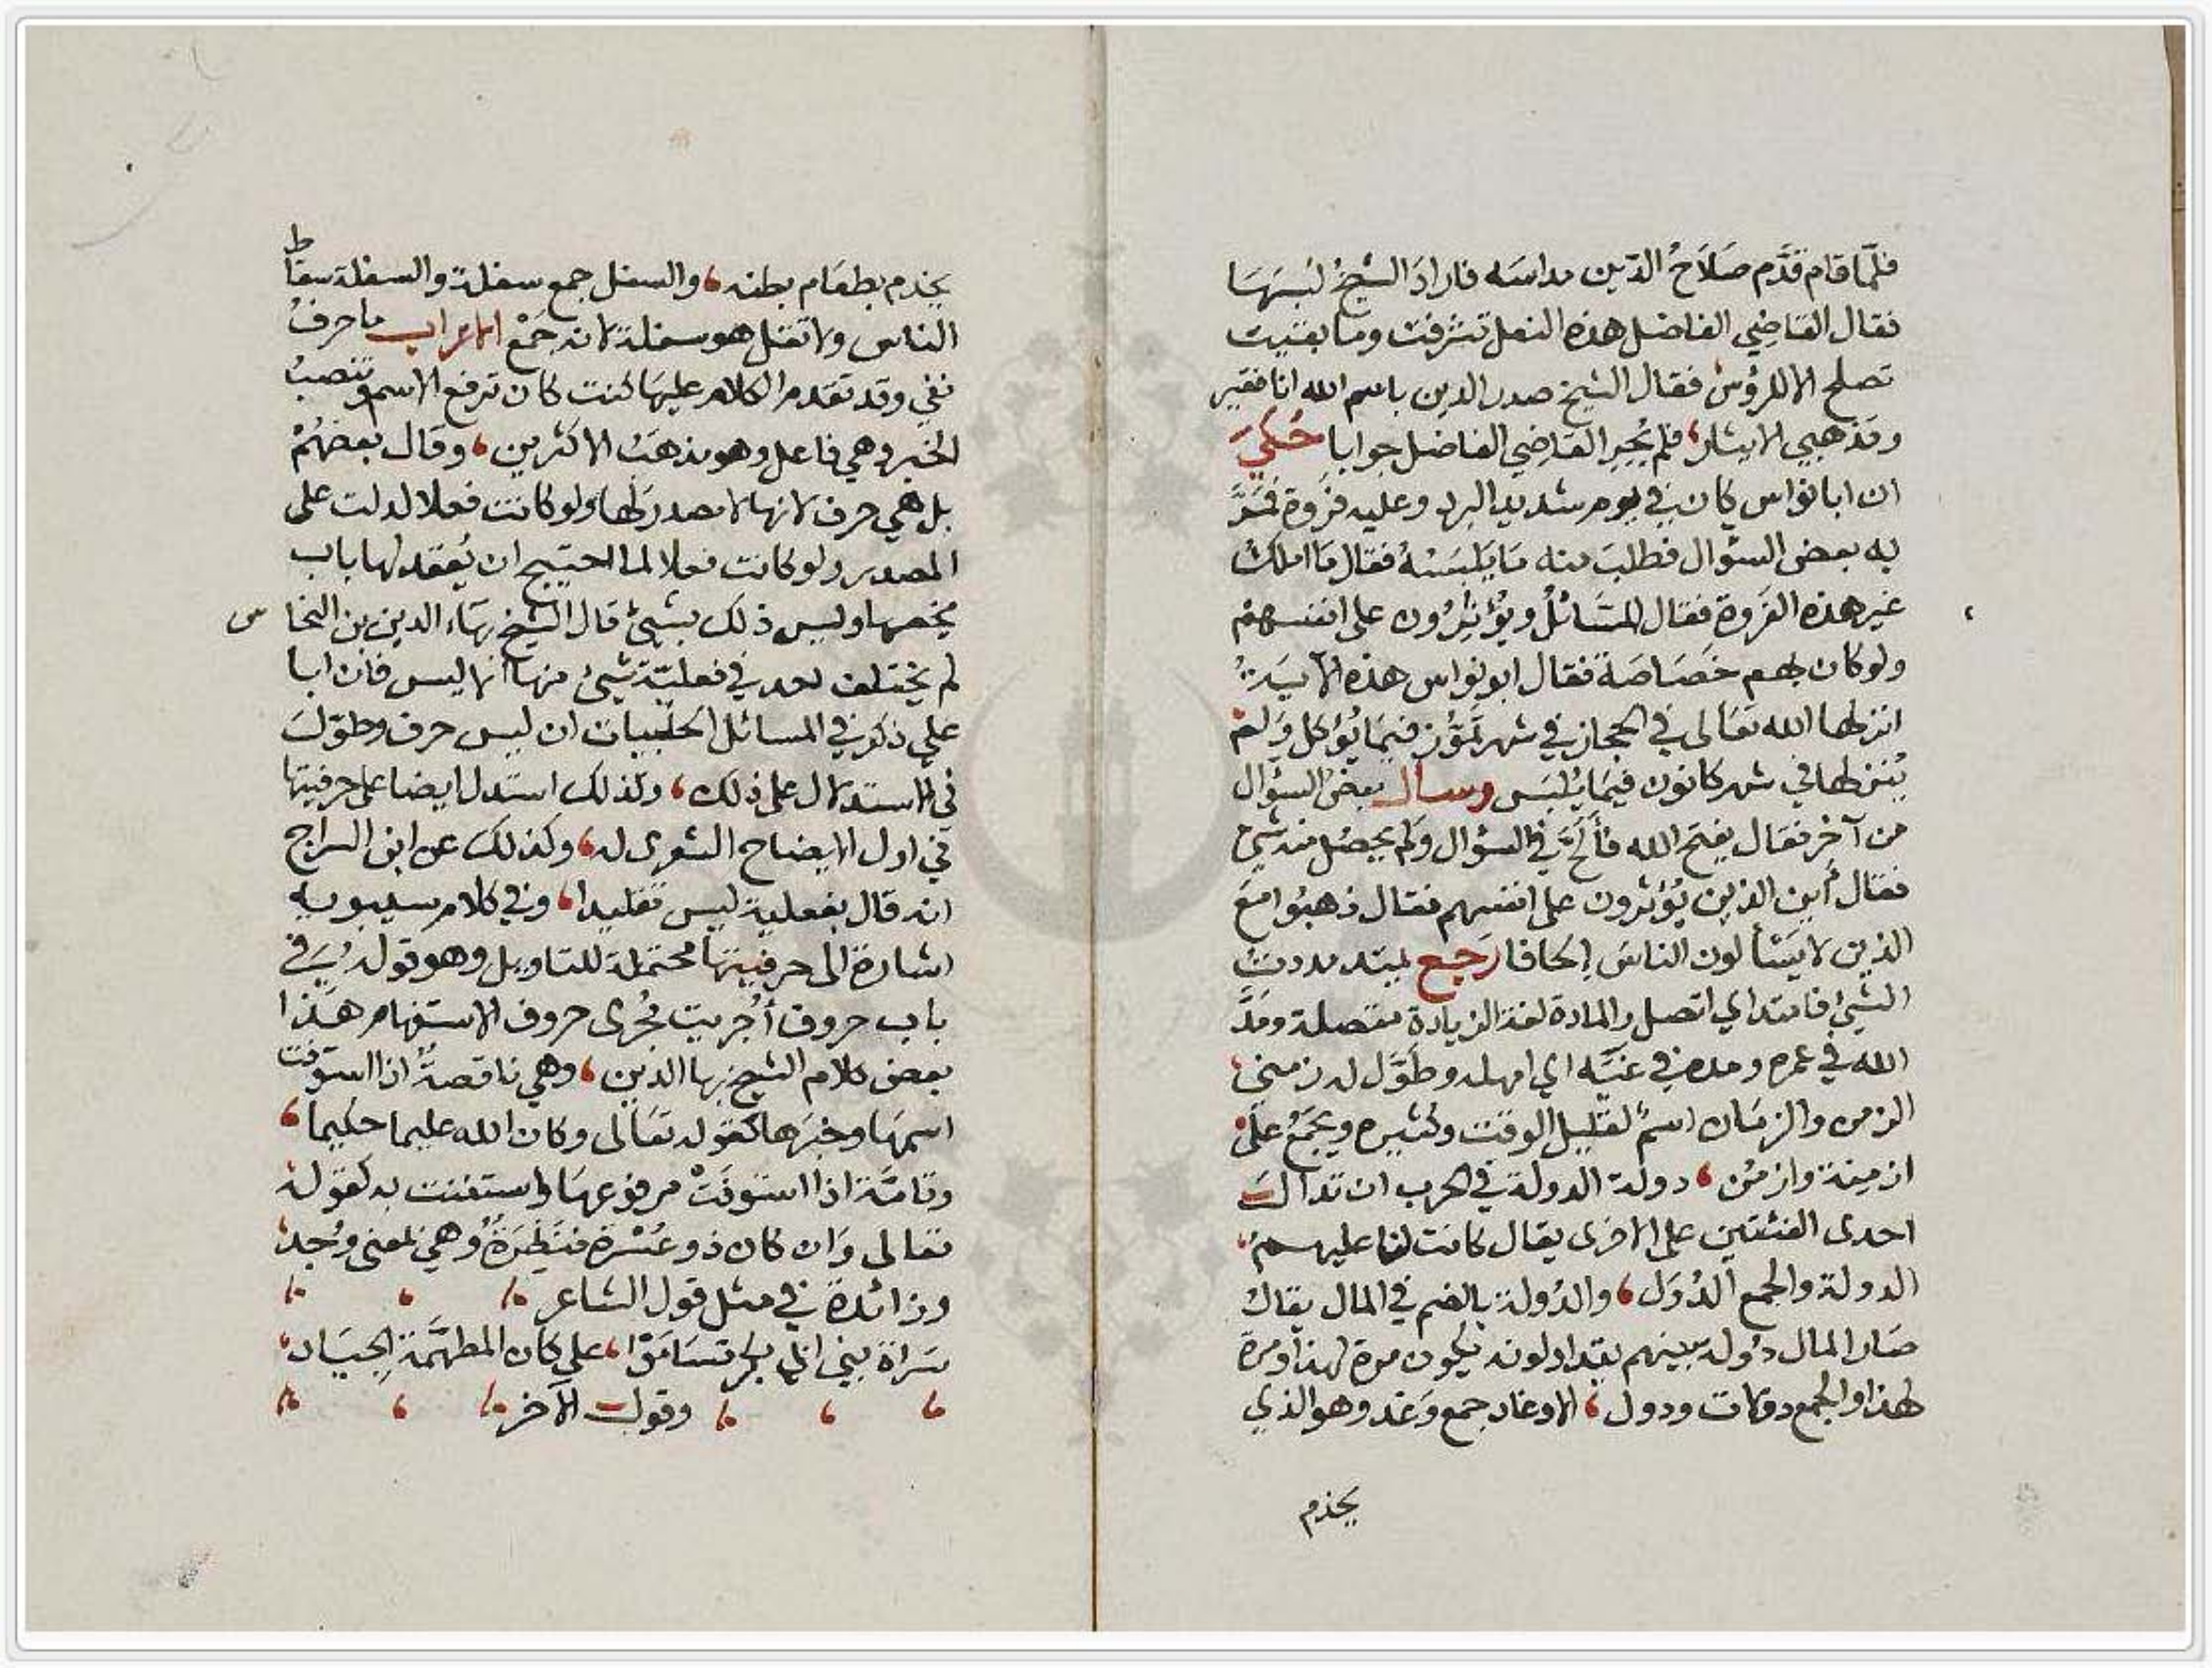 فلمّا قام قدَّم صَلَاحُ الدّين مداسَه فاراد الشيخُ لُبسَهَا
فقال القاضي الفاضل هذه النعل تشرفت وما بقيت
تصلح الا للرؤس فقال الشيخ صدر الدين باسم الله انا فقير
ومذهبي الايثار، فلم يُحِرِ القاضي الفاضل جوابا حُكيَ
ان ابا نواس كان في يوم شديد البرد وعليه فروة فمَرَّ
به بعض السؤال فطلبَ منه مَا يَلبَسُهُ فقال مَا املك
غير هذه الفروة فقال السَائلُ ويُؤثِرُون على انفسهمْ
ولو كان بهم خَصَاصَة فقال ابو نواس هذه الآيَةُ
انزلها الله تعَالى في الحجاز في شهر تَمُّوز فيمَا يُؤكل وَلم
يُنزلها في شهر كانون فيمَا يُلبَس وسال بعض السؤال
من آخر فقال يفتح الله فأَلَحَّ في السؤال وَلم يحصُل منه شئ
فقال أين الذين يُؤثرون على انفسهم فقال ذهبُوا مَعَ
الذين لا يَسْألون الناسَ إلحَافا رَجع يمتد مددتُ
الشئ فامتد اي اتصل والمادة لغة الزيادة متصلة ومَدَّ
الله في عمره ومده في غيّه اي امهله وطَوَّل له زمني
الزمن والزمَان اسمٌ لقليل الوقت وكثيره ويجمَعُ على
ازمنة وازمُن، دولة الدولة في الحرب ان تدال
احدى الفئتين على الاخرى يقال كانت لنا عليهم
الدولة والجمع الدُوَل، والدُولة بالضم في المال يقال
صَار المال دُولة بينهم يتداولونه يكون مرة لهذا ومرة
لهذا والجمع دولات ودول، الاوغاد جمع وَغد وهو الذي
يخدم
يخدم بطعَام بطنه، والسفل جمع سفلة والسفلة سقاط
الناس ولا تقل هو سفلة لانه جَمْع الاعراب ما حرفُ
نفي وقد تقدم الكلام عليهَا كنت كان ترفع الاسم وتنصبُ
الخبر وهي فاعل وهو مذهَبُ الاكثرين، وقال بعضُهُمْ
بل هي حرف لانها لا مصدر لها ولو كانت فعلا لدلت على
المصدر ولو كانت فعلا لما احتيج ان يُعقد لها باب
يخصها وليس ذلك بشئ قال الشيخ بهَاء الدين بن النحاس
لم يختلف احد في فعليّة شئ منها الا ليس فان ابا
علي ذكر في المسائل الحلبيات ان ليس حرف وطوّلَ
في الاستدلال على ذلك، وكذلك استدل ايضا على حرفيتها
في اول الايضاح الشعرى له، وكذلك عن ابن السراج
انه قال بفعلية ليس تقليدا، وفي كلام سيبويه
اشارة الى حرفيتها محتملة للتاويل وهو قوله في
باب حروف أُجْرِيت مُجرى حروف الاستفهام هَذا
بعض كلام الشيخ بها الدين، وهي ناقصةٌ اذا استوفت
اسمهَا وخبرَها كقوله تعَالى وكان الله عليما حكيما،
وتامَّة اذا استوفَتْ مرفوعهَا واستغنت به كقوله
تعالى وَان كان ذو عُسْرة فنَظِرَةٌ وهي بمعنى وُجد
وزائدة في مثل قول الشاعر
سَراة بني ابي بكر تسَامَوْا، على كان المطهَّمَة الجيَاد
وقول الآخر